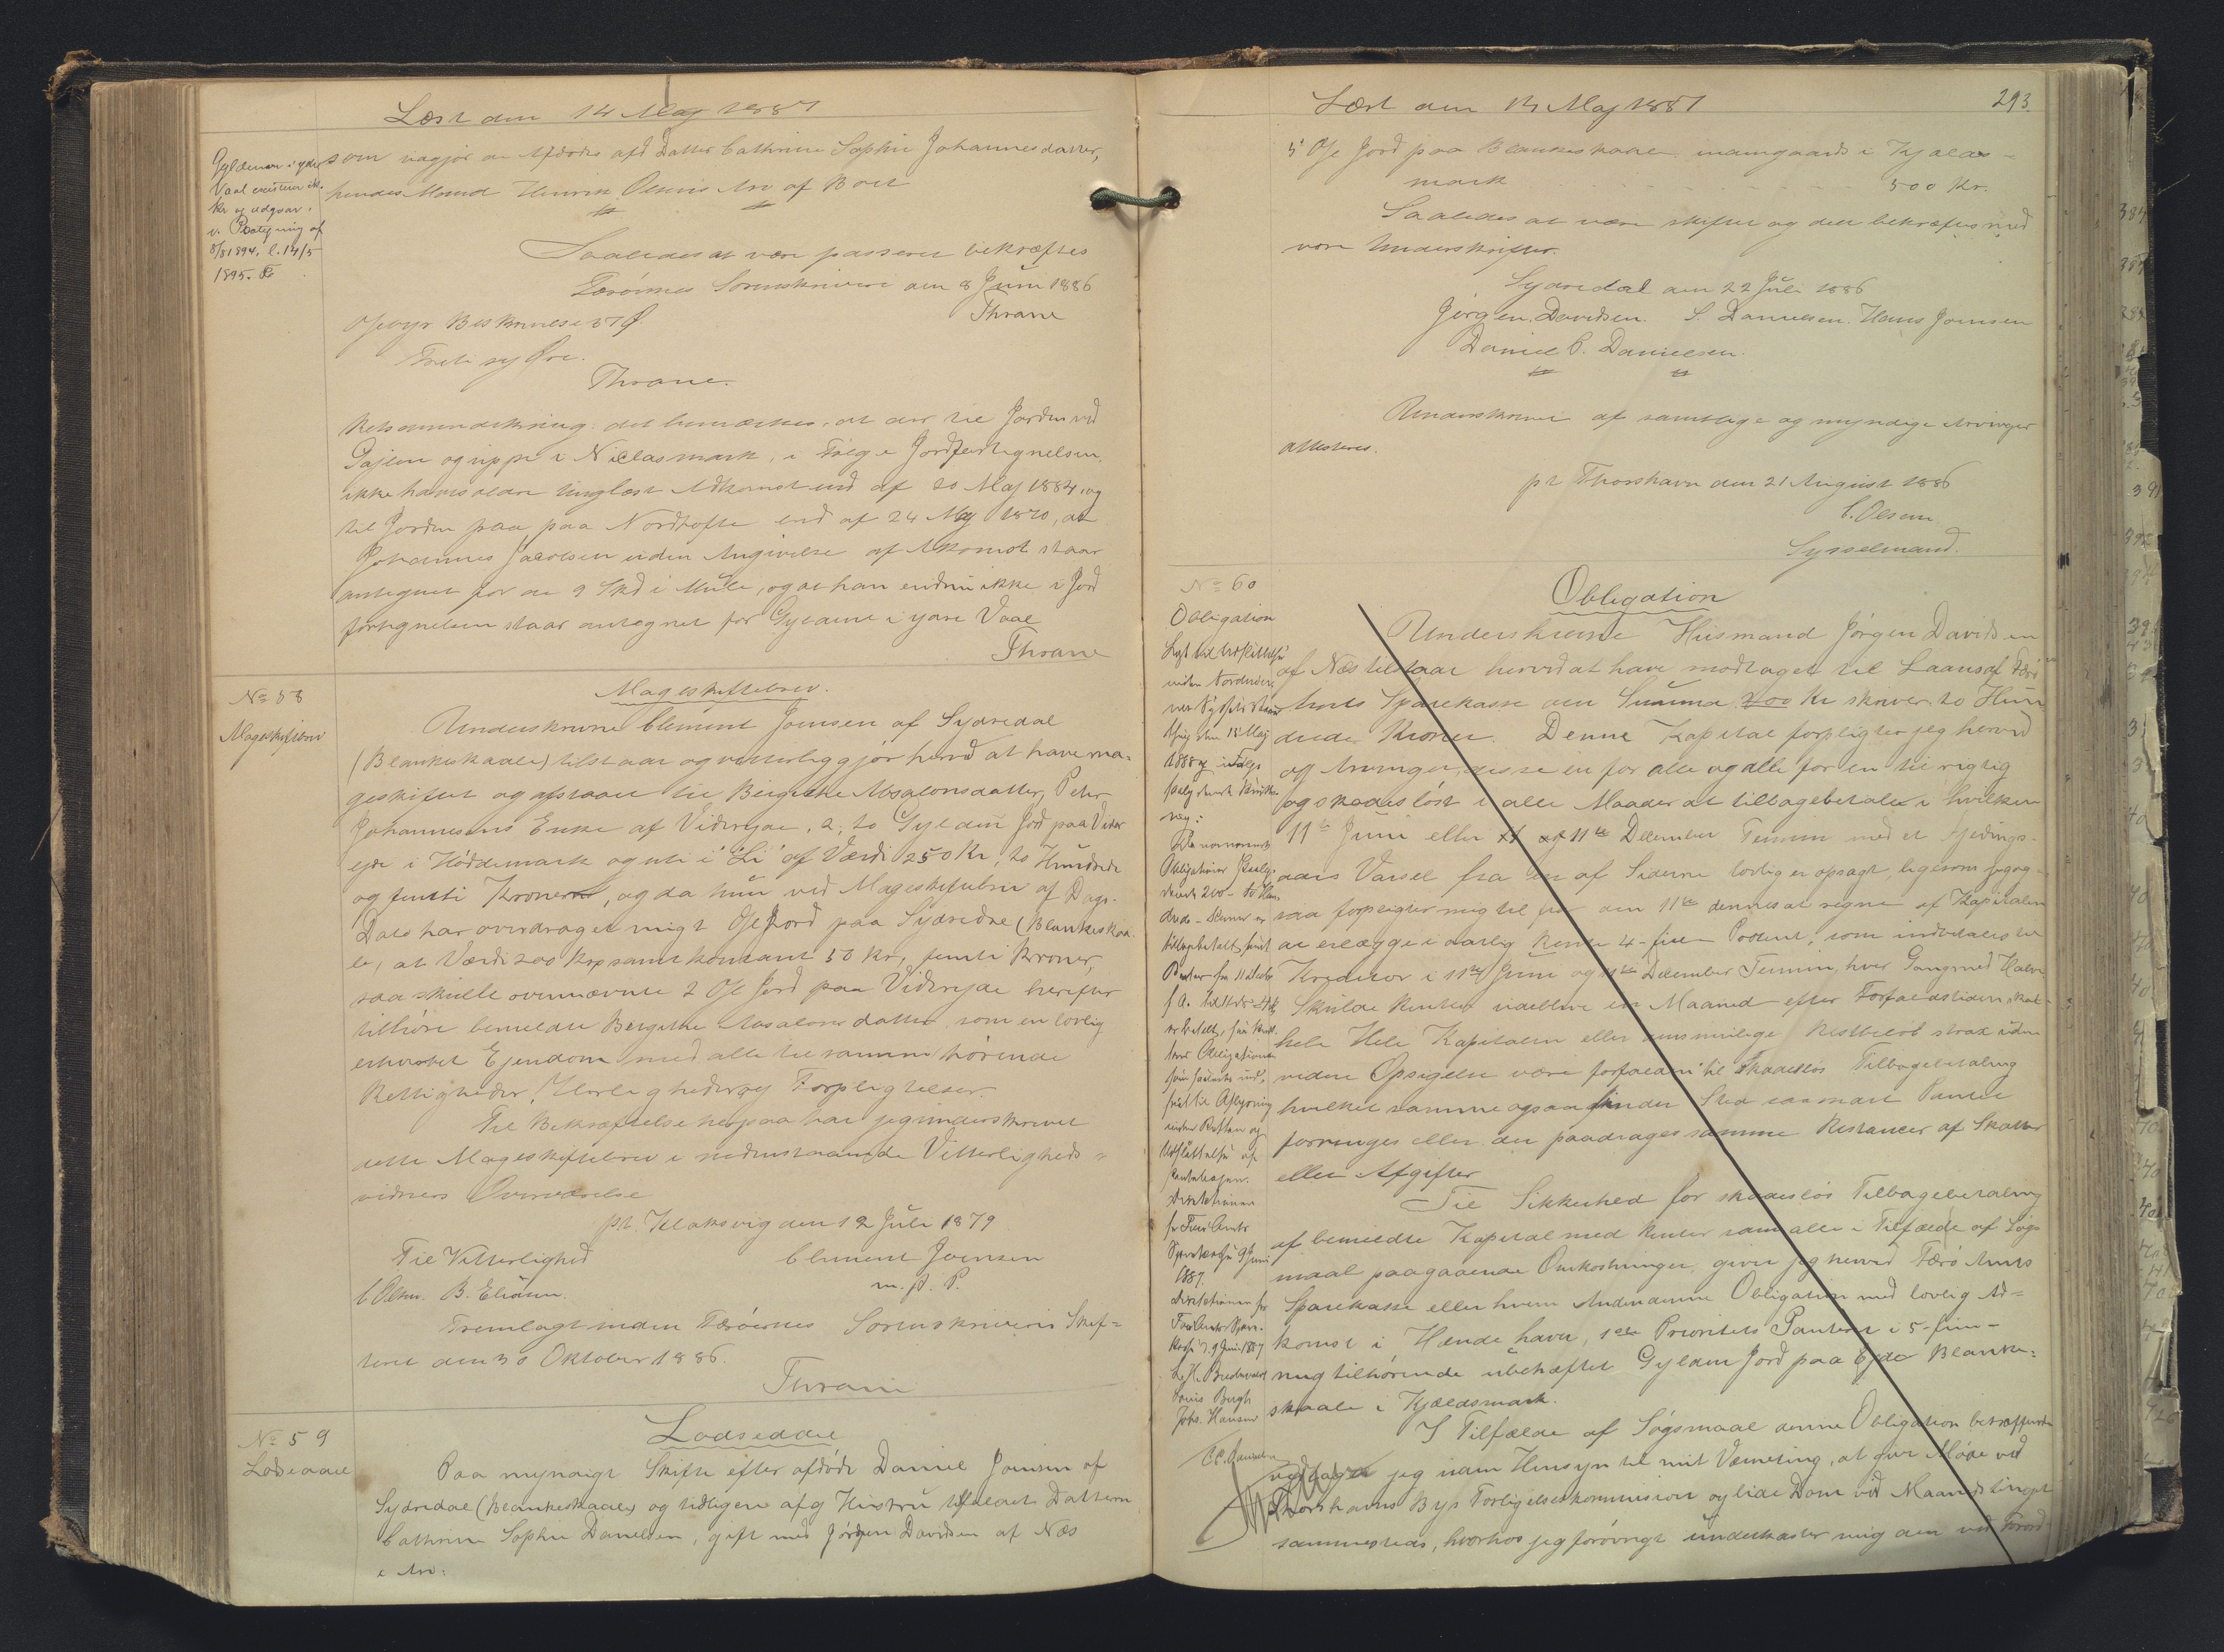 Læst den 14 Maj 1887
Gyldenen i ydre
Vaal existerer ik-
ke og udgaar.
v. Paategning af
8/8 1894, l. 14/5
1895.
som vagjør den Afdødes afd Datter Cathrine Sophie Johannesdatter,
hendes Mand Henrik Olsens Arv af Boet
Saaledes at være passeret bekræftes
Færøernes Sorenskriveri den 8 Juni 1886
Thrane
Beskrivelse 37 Ø.
Treti syv Øre.
Thrane.
Retsanmærkning: det bemærkes, at der til Jorden ved
Gajlen og uppe i Niclasmark, i Følge Jordfortegnelsen,
ikke haves anden tinglæst Adkomst end af 20 Maj 1884, og
til Jorden paa paa Nordtofte end af 24 Maj 1870, at
Johannes Jacobsen uden Angivelse af Adkomst staar
antegnet for de 9 Skd i Mule, og at han endnu ikke i Jord
fortegnelsen staar antegnet for Gylden i ydre Vaal
Thrane
No 58
Mageskiftebrev
Mageskiftebrev.
Underskrevne Clement Joensen af Sydredal
(Blankeskaale) tilstaar og vitterliggjør herved at have ma-
geskiftet og afstaaet til Bergithe Absalonsdatter, Peter
Johannesens Enke af Videreje, 2, to Gylden Jord paa Vider
eje i Høddemark og uti i "Li" af Værdi 250 Kr, to Hundrede
og femti Kroner, og da hun ved Mageskiftebrev af Dags-
Dato har overdraget mig Gl Jord paa Sydredal (Blankeskaa-
le, at Værdi 200 Kr samt kontant 50 Kr, femti Kroner,
saa skulle ovennævnte 2 Gl Jord paa Videreje herefter
tilhøre bemeldte Bergithe Absalonsdatter som en lovlig
erhvervet Ejendom med alle til samme hørende
Rettigheder, Herligheder og Forpligtelser.
Til Bekræftelse herpaa har jeg underskrevet
dette Mageskiftebrev i nedenstaaende Vitterligheds-
vidners Overværelse
pt. Klaksvig den 12 Juli 1879
Til Vitterlighed Clement Joensen
C Olsen. B. Eliasen. m. f. P.
Fremlagt inden Færøernes Sorenskriveris Skif-
teret den 30 Oktober 1886.
Thrane
No 59
Lodseddel
Lodseddel
Paa myndigt Skifte efter afdøde Daniel Joensen af
Sydredal (Blankeskaale) og tidligere afg Hustru tilfaldt Datteren
Cathrine Sophie Danielsen, gift med Jørgen Davidsen af Næs
i Arv:
Læst den 14 Maj 1887
293.
5 Gl Jord paa Blankeskaale indengaards i Kjælds-
mark 500 Kr.
Saaledes at være skiftet og delt bekræftes med
vore Underskrifter.
Sydredal den 22 Juli 1886
Jørgen Davidsen. S. Danielsen. Hans Joensen
Daniel C. Danielsen.
Underskrevne af samtlige og myndige Arvinger
attesteres.
pt Thorshavn den 21 August 1886
C. Olsen
Sysselmand.
No 60
Obligation
Lagt til Udslettelse
inden Norderøer-
nes Syssels
thing den 18 Maj
1888
Obligation
Underskrevne Husmand Jørgen Davidsen
af Næs tilstaar herved at have modtaget til Laans af Færø
Amts Sparekasse den Summa 200 Kr skriver to Hun
drede Kroner. Denne Kapital forpligter jeg herved
og Arvinger, disse en for alle og alle for en til rigtig
og skadesløst i alle Maader at tilbagebetale i hvilken
11te Juni eller 11te December Termin med et Fjerdings-
aars Varsel fra en af Siderne lovlig er opsagt, ligesom jeg og-
saa forpligter mig til fra den 11te dennes at regne af Kapitalen
at erlægge i aarlig Rente 4 - fire Procent, som indbetales til
Kreditor i 11te Juni og 11te December Termin, hver Gang med Halv
Skulde Renten udeblive en Maaned efter Forfaldstiden skal
hele Hele Kapitalen eller dens mulige Restbeløb strax uden
videre Opsigelse være forfalden til skadesløs Tilbagebetaling
hvilket samme ogsaa finder Sted saasnart Pantet
forringes eller der paadrages samme Restancer af Skatter
eller Afgifter
Til Sikkerhed for skadesløs Tilbagebetaling
af bemeldte Kapital med Renter samt alle i Tilfælde af Søgs
maal paagaaende Omkostninger, giver jeg herved Færø Amts
Sparekasse eller hvem Anden denne Obligation med lovlig Ad-
komst i Hænde haver, 1ste Prioritets Panteret i 5 - fem -
mig tilhørende ubehæftet Gylden Jord paa Ejde Blanke-
skaale i Kjældsmark.
I Tilfælde af Søgsmaal denne Obligation betræffende
vedtager jeg uden Hensyn til mit Værneting, at give Møde ved
Thorshavns Byes Forligelseskommission og lide Dom ved Maanedstinget
sammesteds, hvorhos jeg forøvrigt underkaster mig den ved Forord
Obligation
200 - to Hun-
drede - Kroner er
tilbagebetalt samt
Renter fra 11 Decbr
inden Retten og
Udslettelse af
Pantebogen.
Direktionen
for Færø Amts
Sparekasse 9 Juni
1887.
Direktionen for
Færø Amts Spare-
kasse d. 9 Juni 1887
Louis Bergh
Johs. Hansen